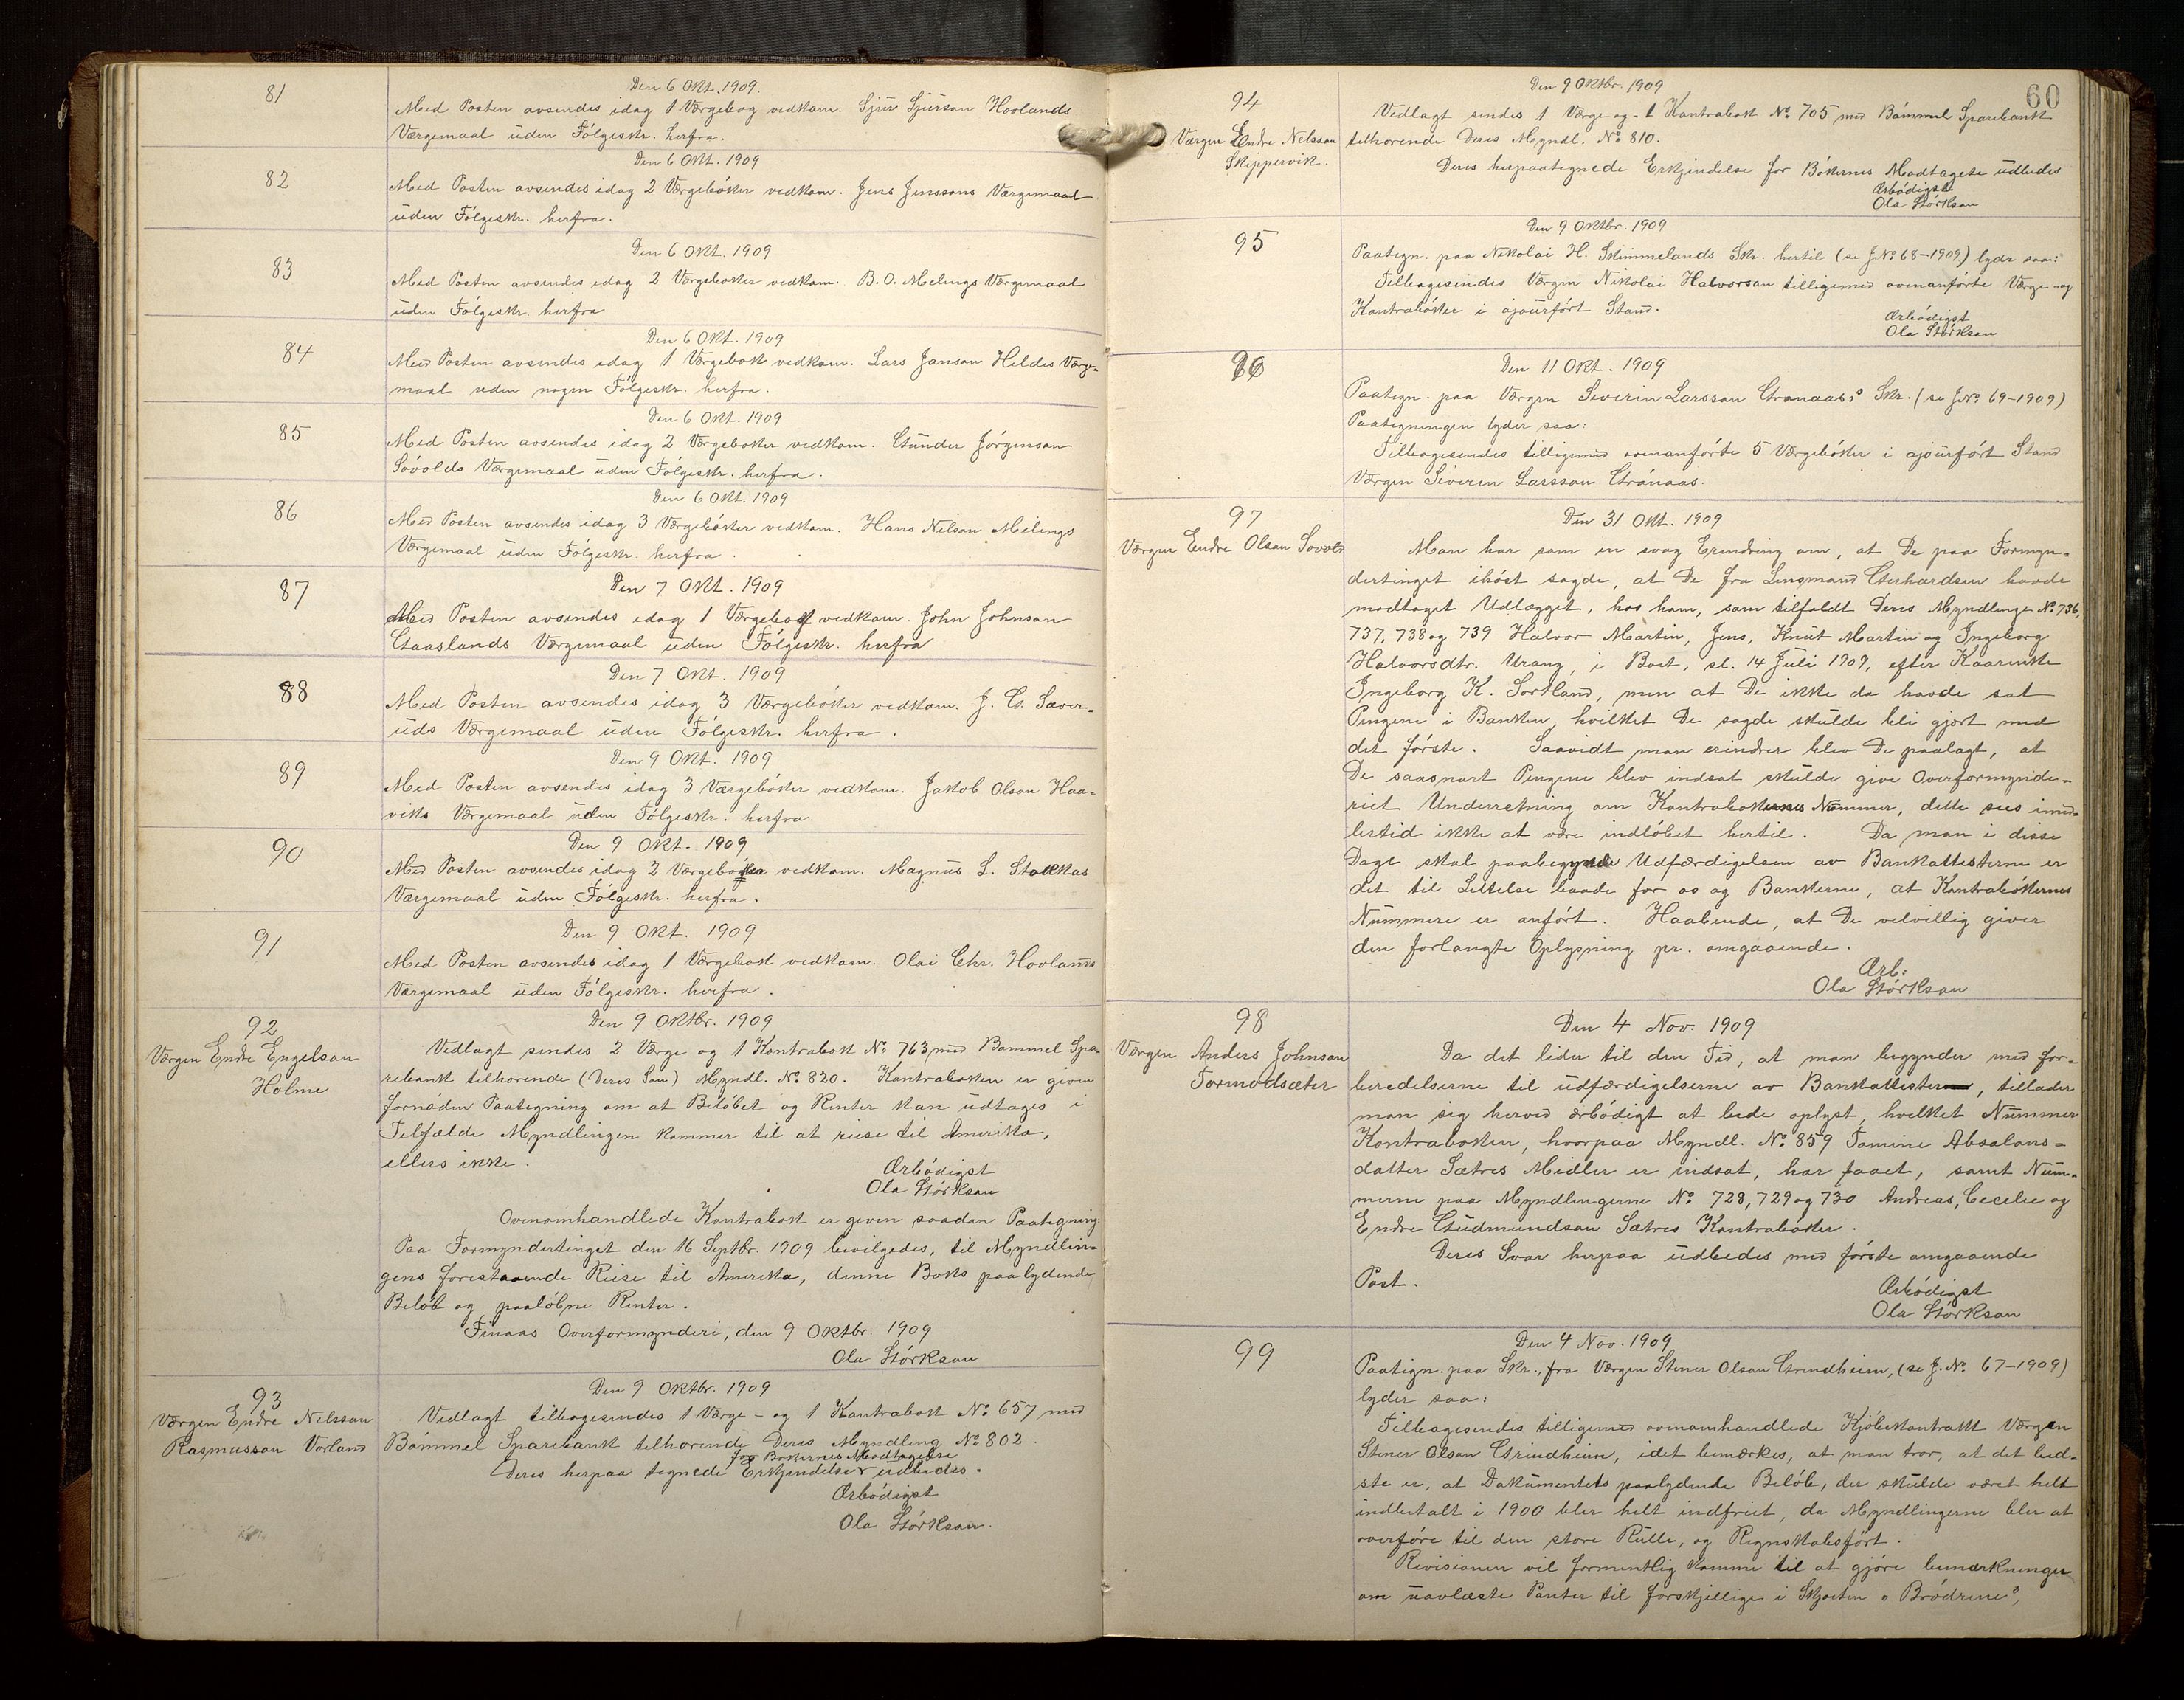 81
Den 6 Okt. 1909.
Med Posten avsendes idag 1 Værgebog vedkom. Sjur Sjursson Hovlands
Værgemaal uden Følgeskr. herfra.
82
Den 6 Okt. 1909
Med Posten avsendes idag 2 Værgebøker vedkom. Jens Jenssons Værgemaal
uden Følgeskr. herfra.
83
Den 6 Okt. 1909
Med Posten avsendes idag 2 Værgebøker vedkom. B. O. Melings Værgemaal
uden Følgeskr. herfra
84
Den 6 Okt. 1909
Med Posten avsendes idag 1 Værgebok vedkom. Lars Janson Hildes Værge-
maal uden nogen Følgeskr. herfra.
85
Den 6 Okt. 1909
Med Posten avsendes idag 2 Værgebøker vedkom. Gunder Jørgenson
Søvolds Værgemaal uden Følgeskr. herfra.
86
Den 6 Okt. 1909
Med Posten avsendes idag 3 Værgebøker vedkom. Hans Nilson Melings
Værgemaal uden Følgeskr. herfra.
87
Den 7 Okt. 1909
Med Posten avsendes idag 1 Værgebok vedkom. John Johnson
Gaaslands Værgemaal uden Følgeskr. herfra
88
Den 7 Okt. 1909
Med Posten avsendes idag 3 Værgebøker vedkom. J. G. Sæver-
uds Værgemaal uden Følgeskr. herfra.
89
Den 9 Okt. 1909
Med Posten avsendes idag 3 Værgebøker vedkom. Jakob Olson Haa-
viks Værgemaal uden Følgeskr. herfra.
90
Den 9 Okt. 1909
Med Posten avsendes idag 2 Værgebøker vedkom. Magnus L. Stokkas
Værgemaal uden Følgeskr. herfra.
91
Den 9 Okt. 1909
Med Posten avsendes idag 1 Værgebok vedkom. Olai Chr. Hovlands
Værgemaal uden Følgeskr. herfra.
92
Værgen Endre Engelson
Holme
Den 9 Oktbr. 1909
Vedlagt sendes 2 Værge og 1 Kontrabok No. 763 med Bømmel Spa-
rebank tilhørende (Deres Søn) Myndl. No. 820. Kontraboken er given
fornøden Paategning om at Beløbet og Renter kan udtages i
Tilfælde Myndlingen kommer til at reise til Amerika,
ellers ikke.
Ærbødigst
Ola Størkson
Ovenomhandlede Kontrabok er given saadan Paategning
Paa Formyndertinget den 16 Septbr. 1909 bevilgedes, til Myndlin-
gens forestaaende Reise til Amerika, denne Boks paalydende
Beløb og paaløbne Renter.
Finaas Overformynderi, den 9 Oktbr. 1909
Ola Størkson
93
Værgen Endre Nelsson
Rasmusson Vorland
Den 9 Oktbr. 1909
Vedlagt tilbagesendes 1 Værge- og 1 Kontrabok No. 657 med
Bømmel Sparebank tilhørende Deres Myndling No. 802
for Bøkernes Modtagelse
Deres herpaa tegnede Erkjendelse udbedes.
Ærbødigst
Ola Størkson.
60
94
Værgen Endre Nelsson
Skippersvik.
Den 9 Oktbr. 1909
Vedlagt sendes 1 Værge og 1 Kontrabok No. 705 med Bømmel Sparebank
tilhørende Deres Myndl. No. 810.
Deres herpaategnede Erkjendelse for Bøkernes Modtagelse udbedes
Ærbødigst
Ola Størkson
95
Den 9 Oktbr. 1909
Paategn. paa Nikolai H. Skimmelands Skr. hertil (se J.No. 68-1909) lyder saa:
Tilbagesendes Værgen Nikolai Halvorson tilligemed ovenanførte Værge- og
Kontrabøker i ajourført Stand.
Ærbødigst
Ola Størkson
96
Den 11 Okt. 1909
Paategn. paa Værgen Severin Larsson Grønaas's Skr. (se J.No. 69-1909)
Paategningen lyder saa:
Tilbagesendes tilligemed ovenanførte 5 Værgebøker i ajourført Stand
Værgen Severin Larsson Grønaas.
97
Værgen Endre Olson Søvold
Den 31 Okt. 1909
Man har som en svag Erindring om, at De paa Formyn-
dertinget ihøst sagde, at De fra Lensmand Gerhardsen havde
modtaget Udlægget, hos ham, som tilfaldt Deres Myndlinge No. 736,
737, 738 og 739 Halvor Martin, Jens, Knut Martin og Ingeborg
Halvorsdtr. Urang, i Boet, sl. 14 Juli 1909, efter Kaarenke
Ingeborg K. Sortland, men at De ikke da havde sat
Pengene i Banken, hvilket De sagde skulde bli gjort med
det første. Saavidt man erindrer blev De paalagt, at
De saasnart Pengene blev indsat skulde give Overformynde-
riet Underretning om Kontrabokernes Nummer, dette sees imid-
lertid ikke at være indløbet hertil. Da man i disse
Dage skal paabegynde Udfærdigelsen av Bankattesterne er
det til Lettelse baade for os og Bankerne, at Kontrabøkernes
Nummere er anført. Haabende, at De velvillig giver
den forlangte Oplysning pr. omgaaende.
Ærb:
Ola Størkson
98
Værgen Anders Johnson
Tormodsæter
Den 4 Nov. 1909
Da det lider til den Tid, at man begynder med for-
beredelserne til udfærdigelserne av Bankattester, tillader
man sig herved ærbødigt at bede oplyst, hvilket Nummer
Kontraboken, hvorpaa Myndl. No. 859 Tomine Absalons-
datter Sætres Midler er indsat, har faaet, samt Num-
merne paa Myndlingerne No. 728, 729 og 730 Andreas, Cecelie og
Endre Gudmundson Sætres Kontrabøker.
Deres Svar herpaa udbedes med første omgaaende
Post.
Ærbødigst
Ola Størkson
99
Den 4 Nov. 1909
Paategn. paa Skr., fra Værgen Stener Olson Grindheim, (se J. No. 67-1909)
lyder saa:
Tilbagesendes tilligemed ovenomhandlede Kjøbekontrakt Værgen
Stener Olson Grindheim, idet bemærkes, at man tror, at det bed-
ste er, at Dokumentets paalydende Beløb, der skulde været helt
indbetalt i 1900 bler helt indfriet, da Myndlingerne bler at
overføre til den store Rulle, og Regnskabsført.
Revisionen vil formentlig komme til at gjøre bemærkninger
om uavlæste Panter til forskjellige i Skjøtet "Brødrene",